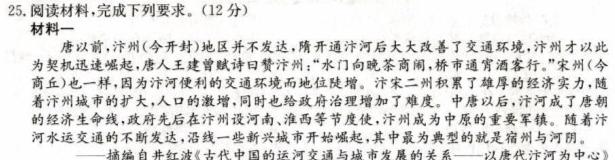 25. 阅读材料,完成下列要求。(12 分)
材料一
唐以前,汴州(今开封)地区并不发达,隋开通汴河后大大改善了交通环境,汴州才以此
为契机迅速崛起,唐人王建曾赋诗曰赞汴州:“水门向晚茶商闹,桥市通宵酒客行。”宋州(今
商丘)也一样,因为汴河便利的交通环境而地位陡增。汴宋二州积累了雄厚的经济实力,随
着汴州城市的扩大,人口的激增,同时也给政府治理增加了难度。中唐以后,汴河成了唐朝
的经济生命线,政府先后在汴州设河南、淮西等节度使,汴州成为中原的重要军镇。随着汴
河水运交通的不断发达,沿线一些新兴城市开始崛起,其中最为典型的就是宿州与河阴。
——摘编自井红波《古代中国的运河交通与城市发展的关系——以唐代汴河为中心》